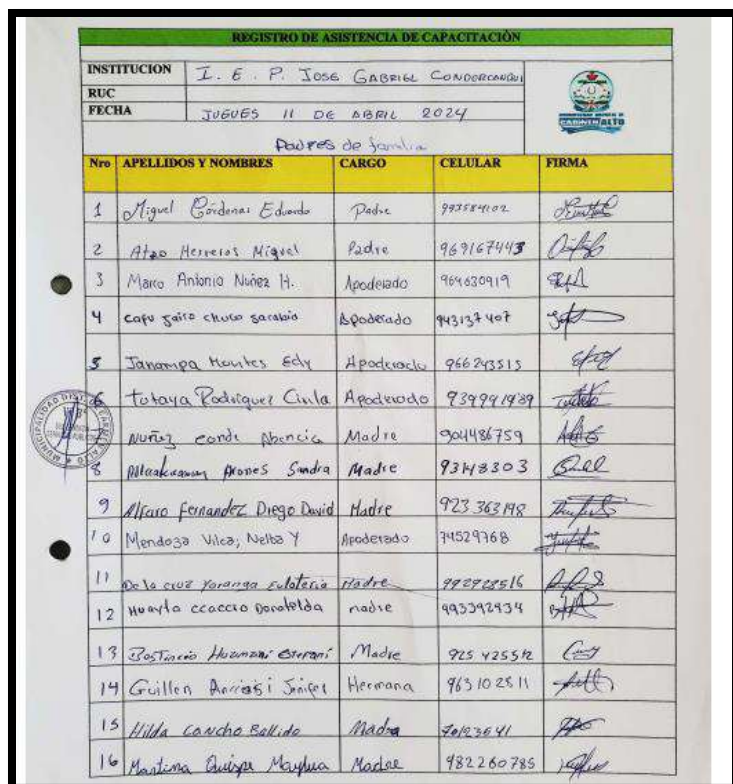 REGISTRO DE ASISTENCIA DE CAPACITACIÓN
INSTITUCION I. E. P. JOSE GABRIEL CONDORCANQUI
RUC
FECHA JUEUES 11 DE ABRIL 2024
CARMEN ALTO
Padres de familia
Nro APELLIDOS Y NOMBRES CARGO CELULAR FIRMA
1 Miguel Cárdenas Eduardo Padre 993584102
2 Atao Herreros Miguel Padre 969167443
3 Marco Antonio Nuñez H. Apoderado 964630919
4 capu jairo chuco sarabia Apoderado 943137407
5 Janampa Montes Edy Apoderado 966243515
6 tutaya Rodriguez Cinla Apoderado 939991989
7 Nuñez conde Abencia Madre 904486759
8 Prones Sandra Madre 93148303
9 Alfaro Fernandez Diego David Madre 923 363 198
10 Mendoza Vilca, Nelba Y Apoderado 74529768
11 De la cruz Yaranga Eulateria Madre 992928516
12 Huayta ccaccio Donatelda madre 993392934
13 Huamani Madre 925 425512
14 Guillen Jenifer Hermana 963102511
15 Hilda CANCHO Bellido Madre 70123541
16 Martina Quispe Mayhua Madre 982260785